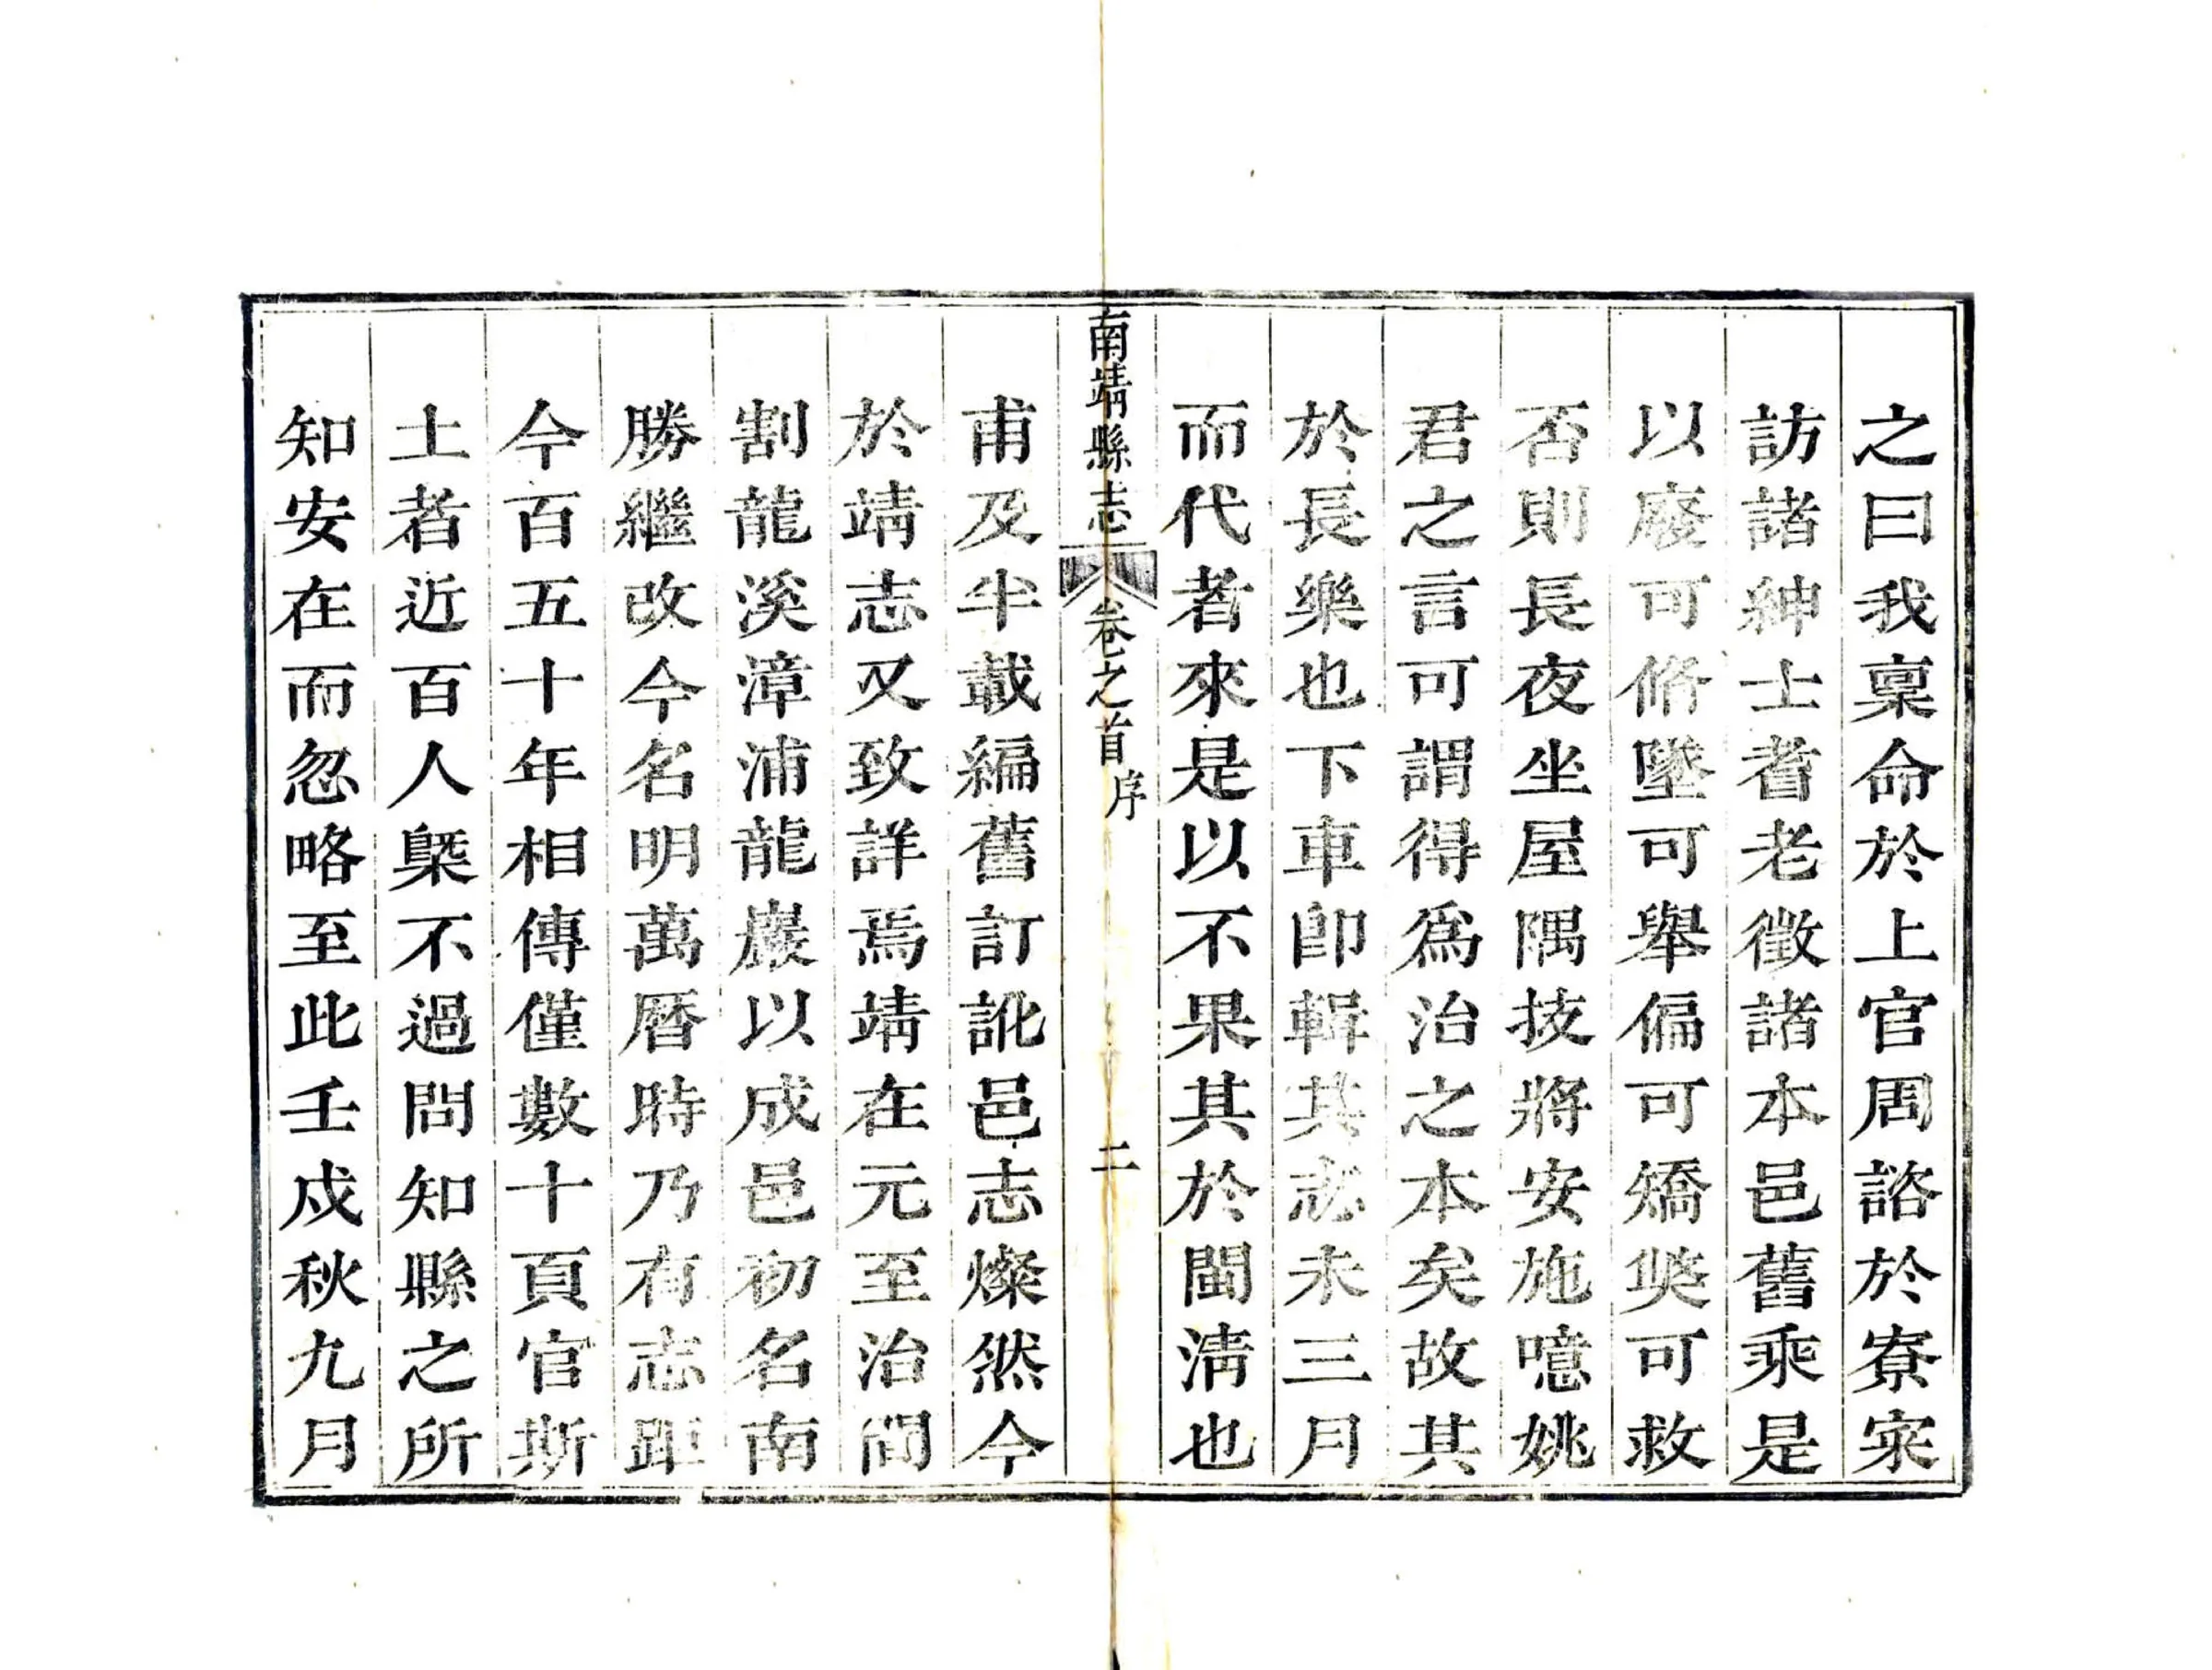 之曰我稟命於上官周諮於寮寀
訪諸紳士耆老徵諸本邑舊乘是
以廢可脩墜可舉偏可矯獘可救
否則長夜坐屋隅技將安施噫姚
君之言可謂得為治之本矣故其
於長樂也下車卽輯其志未三月
而代者來是以不果其於閩淸也
南靖縣志
卷之首
序
二
甫及半載編舊訂訛邑志燦然今
於靖志又致詳焉靖在元至治間
割龍溪漳浦龍巖以成邑初名南
勝繼改今名明萬曆時乃有志距
今百五十年相傳僅數十頁官斯
土者近百人槩不過問知縣之所
知安在而忽略至此壬戌秋九月